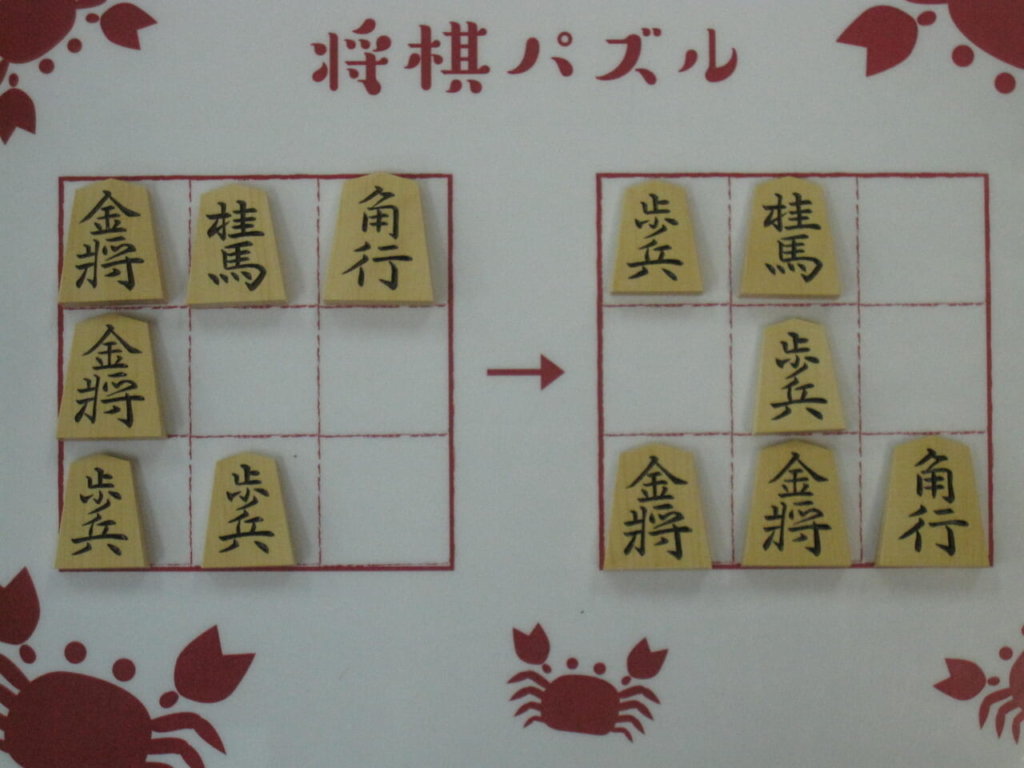 将棋パズル
金将 桂馬 角行
金将
歩兵 歩兵
歩兵 桂馬
歩兵
金将 金将 角行